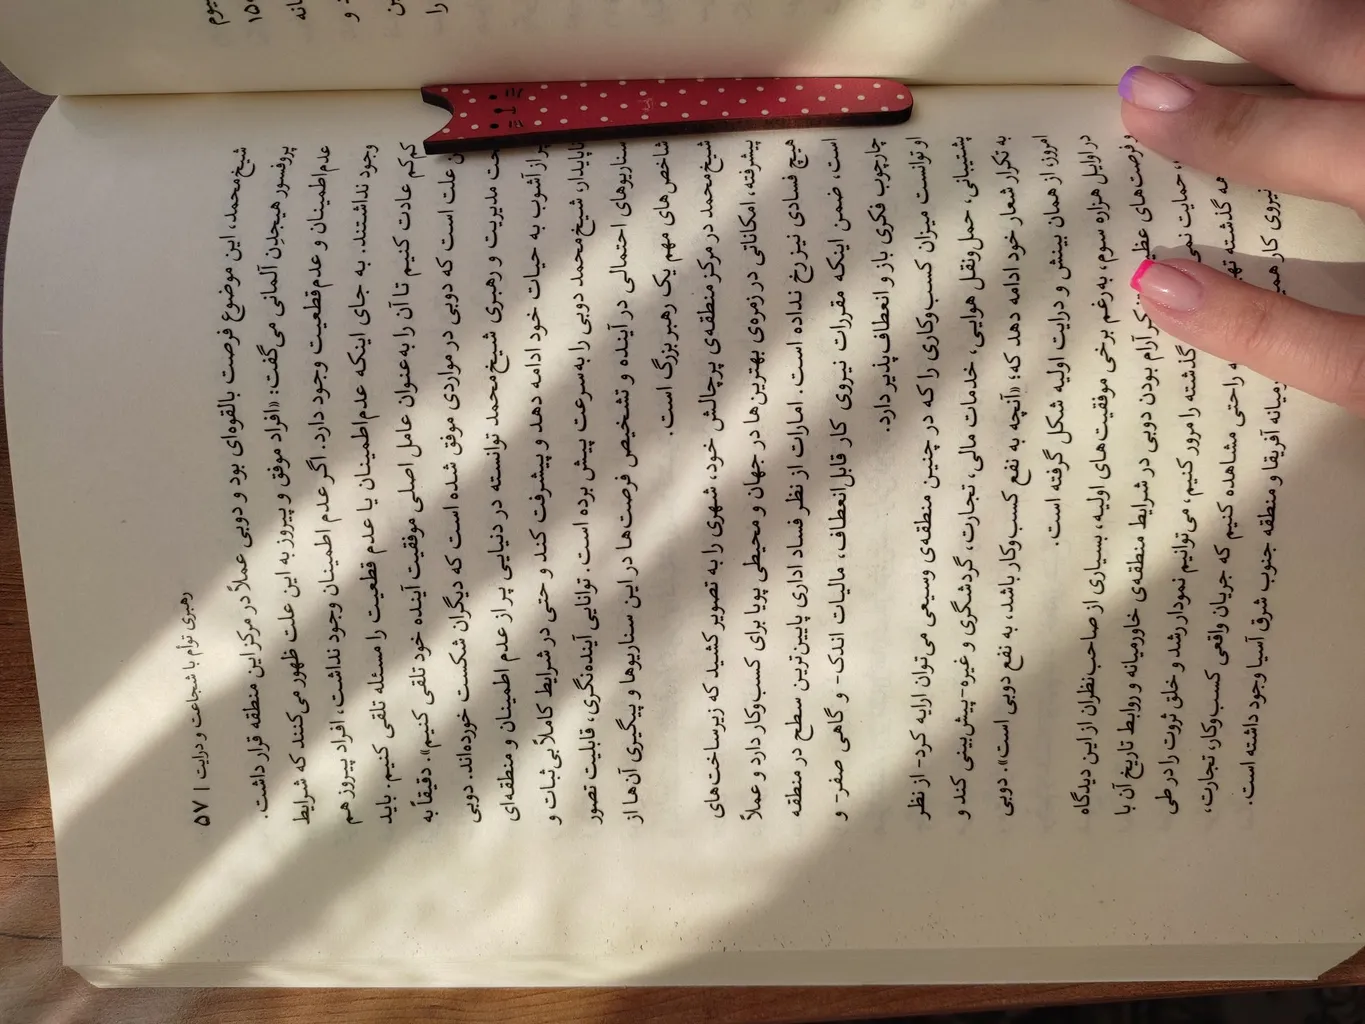 رهبری توأم با شجاعت و درایت | ۵۷
شیخ‌محمد، این موضوع فرصت بالقوه‌ای بود و دوبی عملاً در مرکز این منطقه قرار داشت.
پروفسور هیجدِن آلمانی می‌گفت: «افراد موفق و پیروز به این علت ظهور می‌کنند که شرایط
عدم‌اطمینان و عدم‌قطعیت وجود دارد. اگر عدم اطمینان وجود نداشت، افراد پیروز هم
وجود نداشتند. به جای اینکه عدم‌اطمینان یا عدم قطعیت را مسئله تلقی کنیم. باید
کم‌کم عادت کنیم تا آن را به‌عنوان عامل اصلی موفقیت آینده خود تلقی کنیم». دقیقاً به
علت است که دوبی در مواردی موفق شده است که دیگران شکست خورده‌اند. دوبی
مدیریت و رهبری شیخ‌محمد توانسته در دنیایی پر از عدم اطمینان و منطقه‌ای
از آشوب به حیات خود ادامه دهد و پیشرفت کند و حتی در شرایط کاملاً بی‌ثبات و
ناپایدار، شیخ‌محمد دوبی را به‌سرعت پیش برده است. توانایی آینده‌نگری، قابلیت تصور
سناریوهای احتمالی در آینده و تشخیص فرصت‌ها در این سناریوها و پیگیری آن‌ها از
شاخص‌های مهم یک رهبر بزرگ است.
شیخ‌محمد در مرکز منطقه‌ی پرچالش خود، شهری را به تصویر کشید که زیرساخت‌های
پیشرفته، امکاناتی در زمره‌ی بهترین‌ها در جهان و محیطی پویا برای کسب‌وکار دارد و عملاً
هیچ فسادی نیز رخ نداده است. امارات از نظر فساد اداری پایین‌ترین سطح در منطقه
است، ضمن اینکه مقررات نیروی کار قابل‌انعطاف، مالیات اندک- و گاهی صفر- و
چارچوب فکری باز و انعطاف‌پذیر دارد.
او توانست میزان کسب‌وکاری را که در چنین منطقه‌ی وسیعی می‌توان ارایه کرد- از نظر
پشتیبانی، حمل‌ونقل هوایی، خدمات مالی، تجارت، گردشگری و غیره- پیش‌بینی کند و
به تکرار شعار خود ادامه دهد که: «آنچه به نفع کسب‌وکار باشد، به نفع دوبی است». دوبی
امروز، از همان بینش و درایت اولیه شکل گرفته است.
در اوایل هزاره سوم، به‌رغم برخی موفقیت‌های اولیه، بسیاری از صاحب‌نظران از این دیدگاه
و فرصت‌های آرام بودن دوبی در شرایط منطقه‌ی خاورمیانه و روابط تاریخ آن با
حمایت گذشته را مرور کنیم، می‌توانیم نمودار رشد و خلق ثروت را در طی
گذشته راحتی مشاهده کنیم که جریان واقعی کسب‌وکار، تجارت،
نیروی کار آفریقا و منطقه جنوب شرق آسیا وجود داشته است.